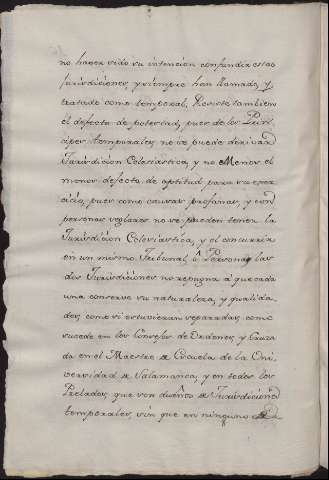 no haver sido su intencion confundir estas
Jurisdiciones, y siempre han llamado, y
tratado como temporal, Reviste tambien
el defecto de potestad, pues de los Prin-
cipes temporales, no se puede derivar
Jurisdicion Eclesiastica, y no Menos el
menor defecto de aptitud para su exer-
cicio, pues como causas profanas, y con
personas seglares no se pueden tener la
Jurisdicion Eclesiastica, y el concurrir
en un mismo Tribunal, ô Persona las
dos Jurisdiciones no repugna à que cada
una conserve su naturaleza, y qualida-
des como si estuvieran separadas, como
sucede en los Consejos de Ordenes, y Cruza-
da en el Maestre Escuela de la Uni-
versidad de Salamanca, y en todos los
Prelados, que son dueños de Jurisdiciones
temporales, sin que en ninguno